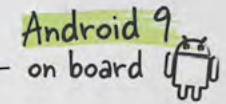 Android 9
- on board